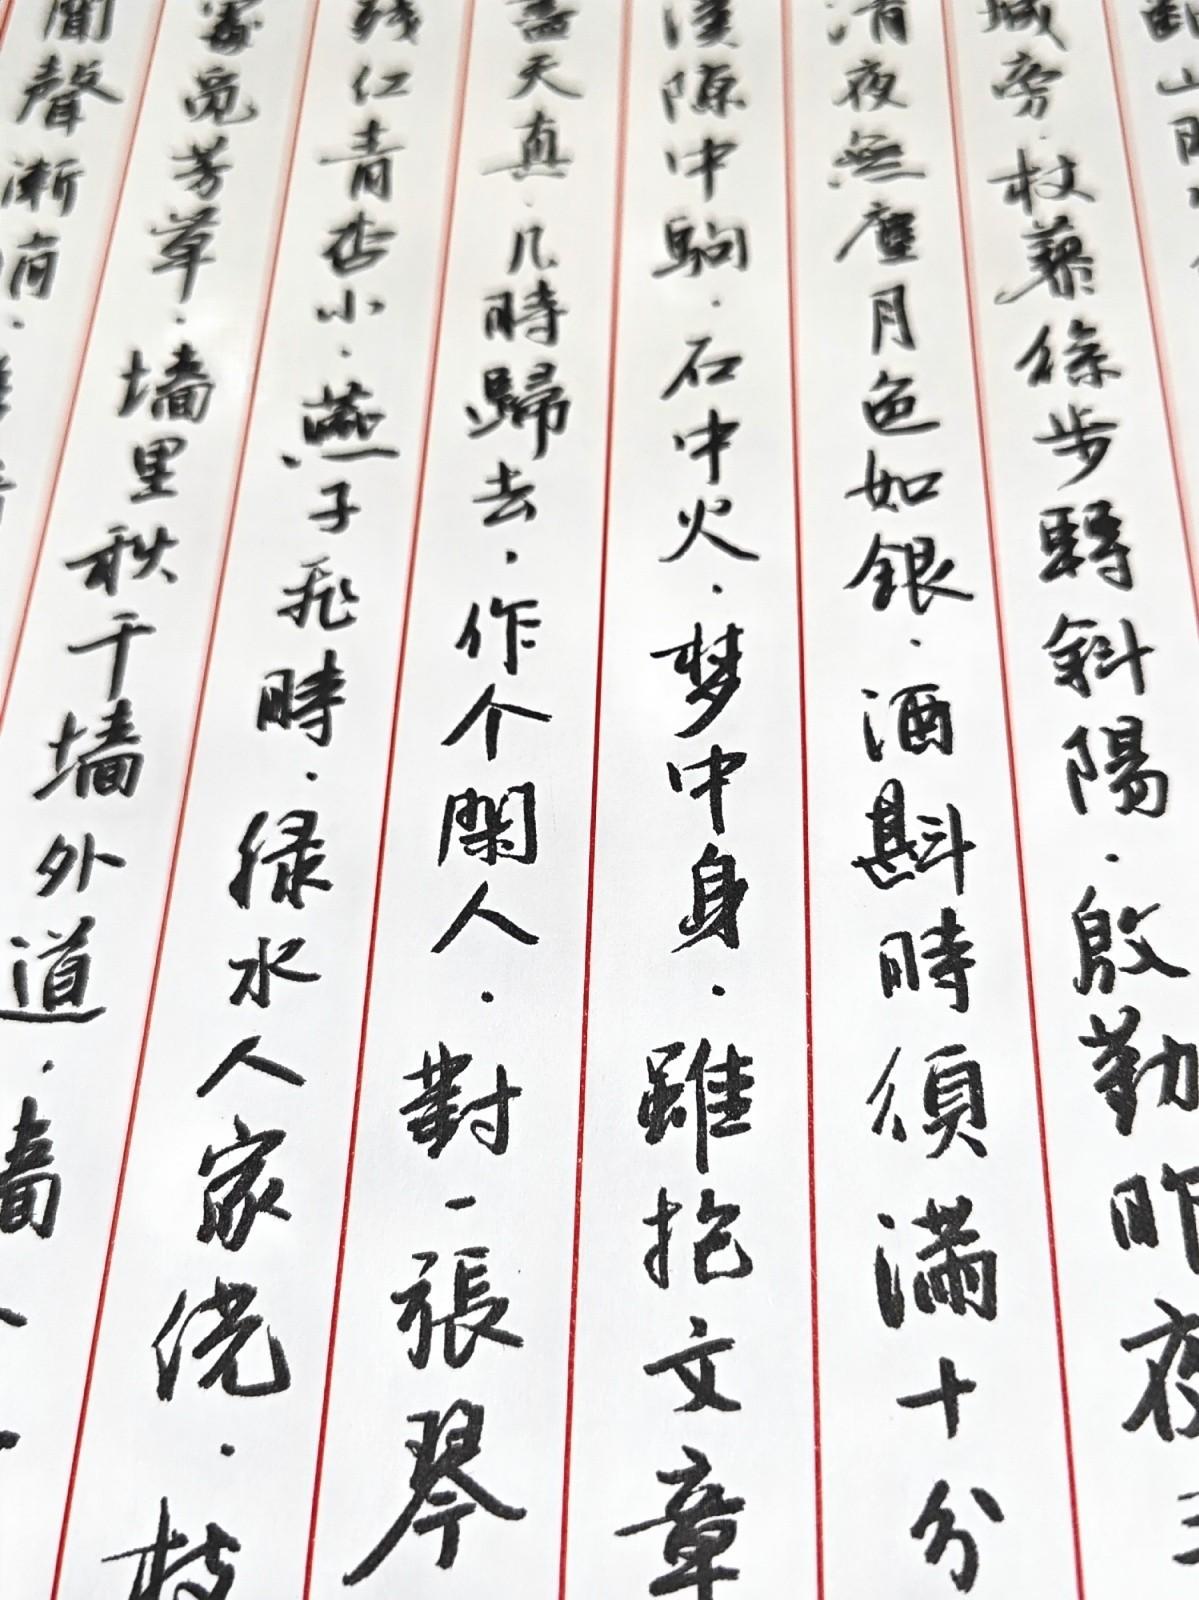 斷山
城旁·杖藜徐步轉斜陽·殷勤昨夜三
清夜無塵月色如銀·酒斟時須滿十分
隙中駒·石中火·梦中身·雖抱文章
盡天真·几時歸去·作个閑人·對一張琴
残红青杏小·燕子飛時·绿水人家绕·枝
芳草·墙里秋千墙外道·墙
聞聲漸悄·